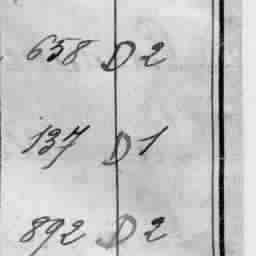 658 D 2
137 D 1
892 D 2